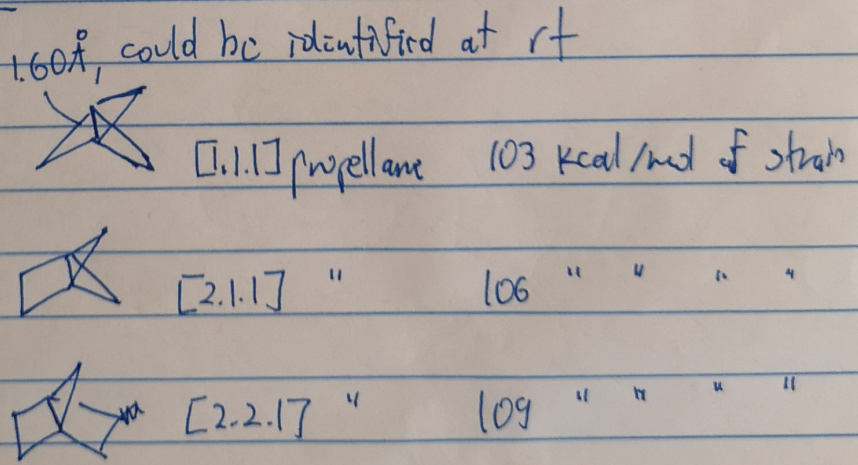 1.60Å, could be identified at rt
[1.1.1] propellane 103 kcal/mol of strain
[2.1.1] " 106 " " " "
[2.2.1] " 109 " " " "